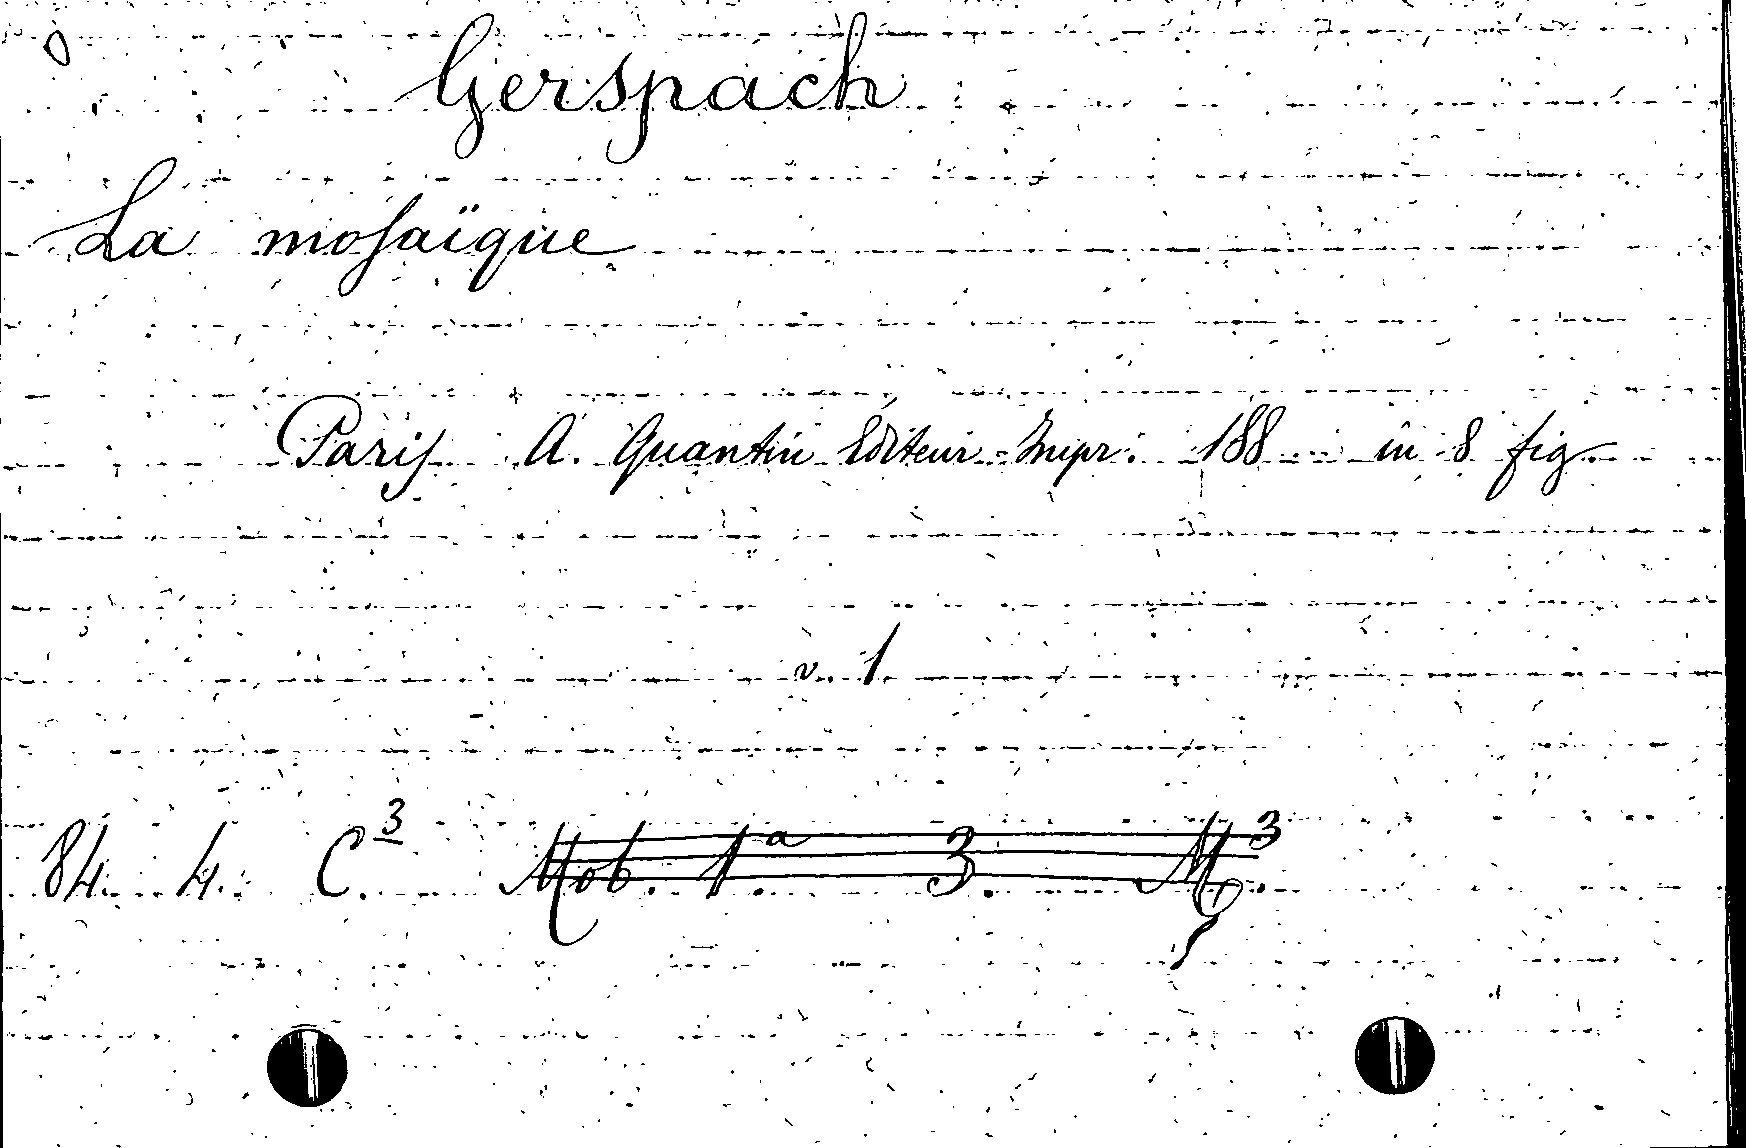 Gerspach
La mosaïque
Paris A. Quantin Editeur-Impr. 188.. in 8 fig.
v. 1
84. 4. C.3 Mob. 1.a 3. M.3